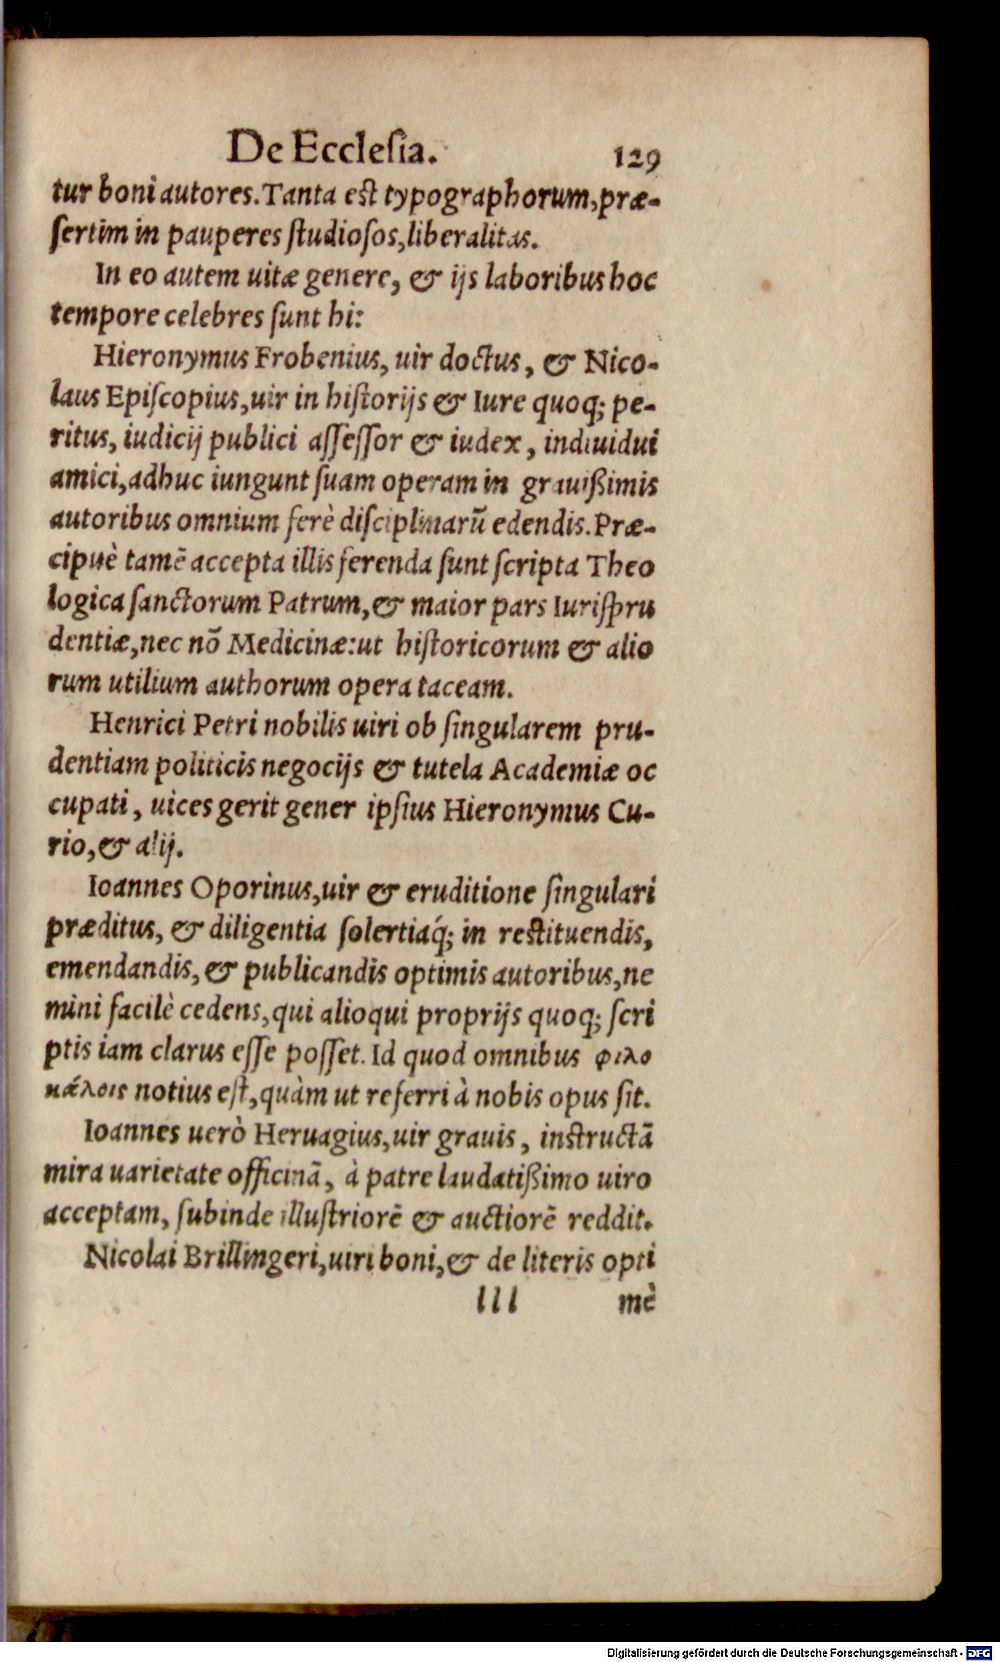 De Ecclesia. 129
tur boni autores. Tanta est typographorum, præ-
sertim in pauperes studiosos, liberalitas.
In eo autem uitæ genere, & ijs laboribus hoc
tempore celebres sunt hi:
Hieronymus Frobenius, uir doctus, & Nico-
laus Episcopius, uir in historijs & Iure quoq; pe-
ritus, iudicij publici assessor & iudex, indiuidui
amici, adhuc iungunt suam operam in grauißimis
autoribus omnium ferè disciplinarũ edendis. Præ-
cipuè tamẽ accepta illis ferenda sunt scripta Theo
logica sanctorum Patrum, & maior pars Iurispru
dentiæ, nec nõ Medicinæ: ut historicorum & alio
rum utilium authorum opera taceam.
Henrici Petri nobilis uiri ob singularem pru-
dentiam politicis negocijs & tutela Academiæ oc
cupati, uices gerit gener ipsius Hieronymus Cu-
rio, & alij.
Ioannes Oporinus, uir & eruditione singulari
præditus, & diligentia solertiaq́; in restituendis,
emendandis, & publicandis optimis autoribus, ne
mini facilè cedens, qui alioqui proprijs quoq; scri
ptis iam clarus esse posset. Id quod omnibus φιλο
κάλοις notius est, quàm ut referri à nobis opus sit.
Ioannes uerò Heruagius, uir grauis, instructã
mira uarietate officinã, à patre laudatißimo uiro
acceptam, subinde illustriorẽ & auctiorẽ reddit.
Nicolai Brillingeri, uiri boni, & de literis opti
lll mè
Digitalisierung gefördert durch die Deutsche Forschungsgemeinschaft - DFG